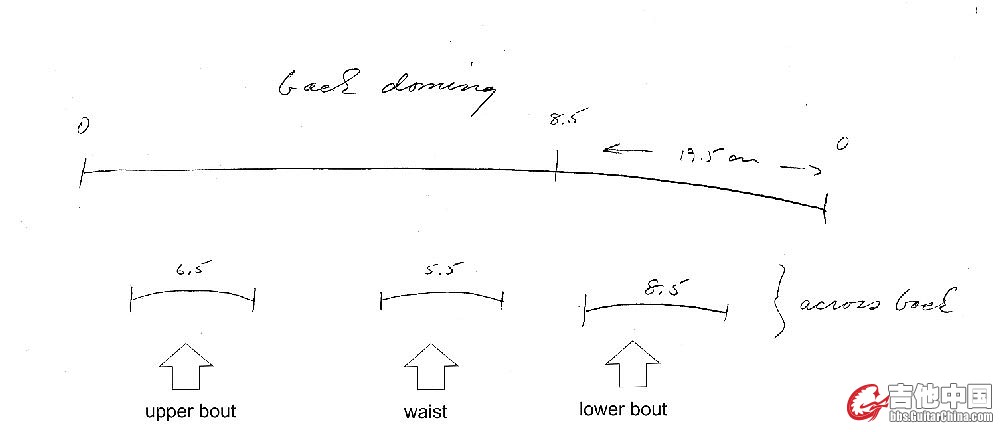 back doming
0
8.5
0
19.5 cm
6.5
5.5
8.5
across back
upper bout
waist
lower bout
吉他中国
bbs.GuitarChina.com